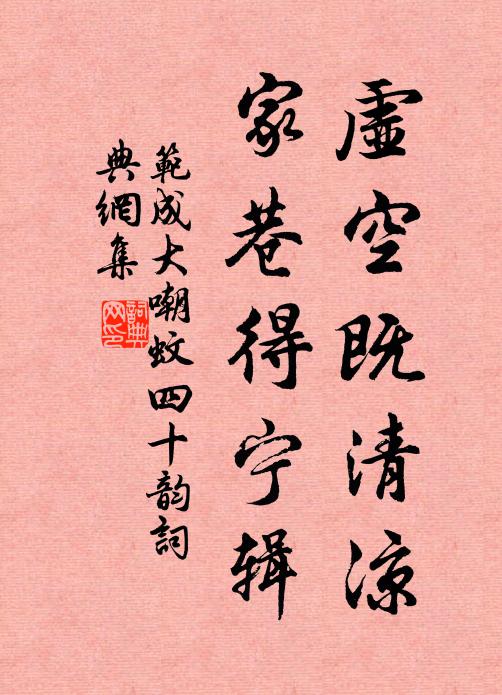 虛空既清涼
家巷得宁辑
範成大嘲蚊四十韵詞
典網集
詞典
网印